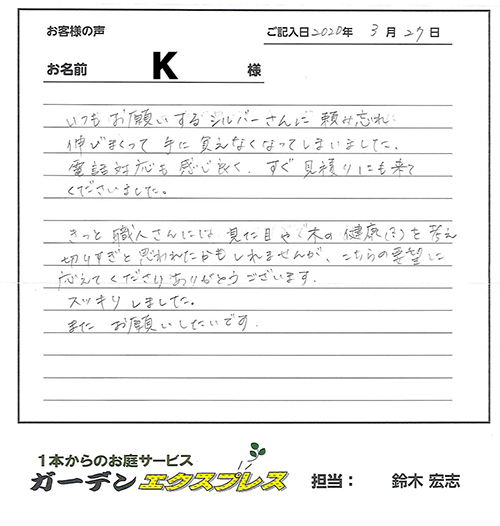 お客様の声
ご記入日2020年 3月27日
お名前 K 様
いつもお願いするシルバーさんに 頼み忘れ
伸びまくって 手に負えなくなってしまいました。
電話対応も感じ良く、すぐ見積りにも来て
くださいました。
きっと 職人さんには 見た目や 木の 健康(?)を考え
切りすぎと思われたかもしれませんが、こちらの要望に
応えてくださりありがとうございます。
スッキリしました。
また お願いしたいです。
1本からのお庭サービス
ガーデンエクスプレス 担当: 鈴木 宏志